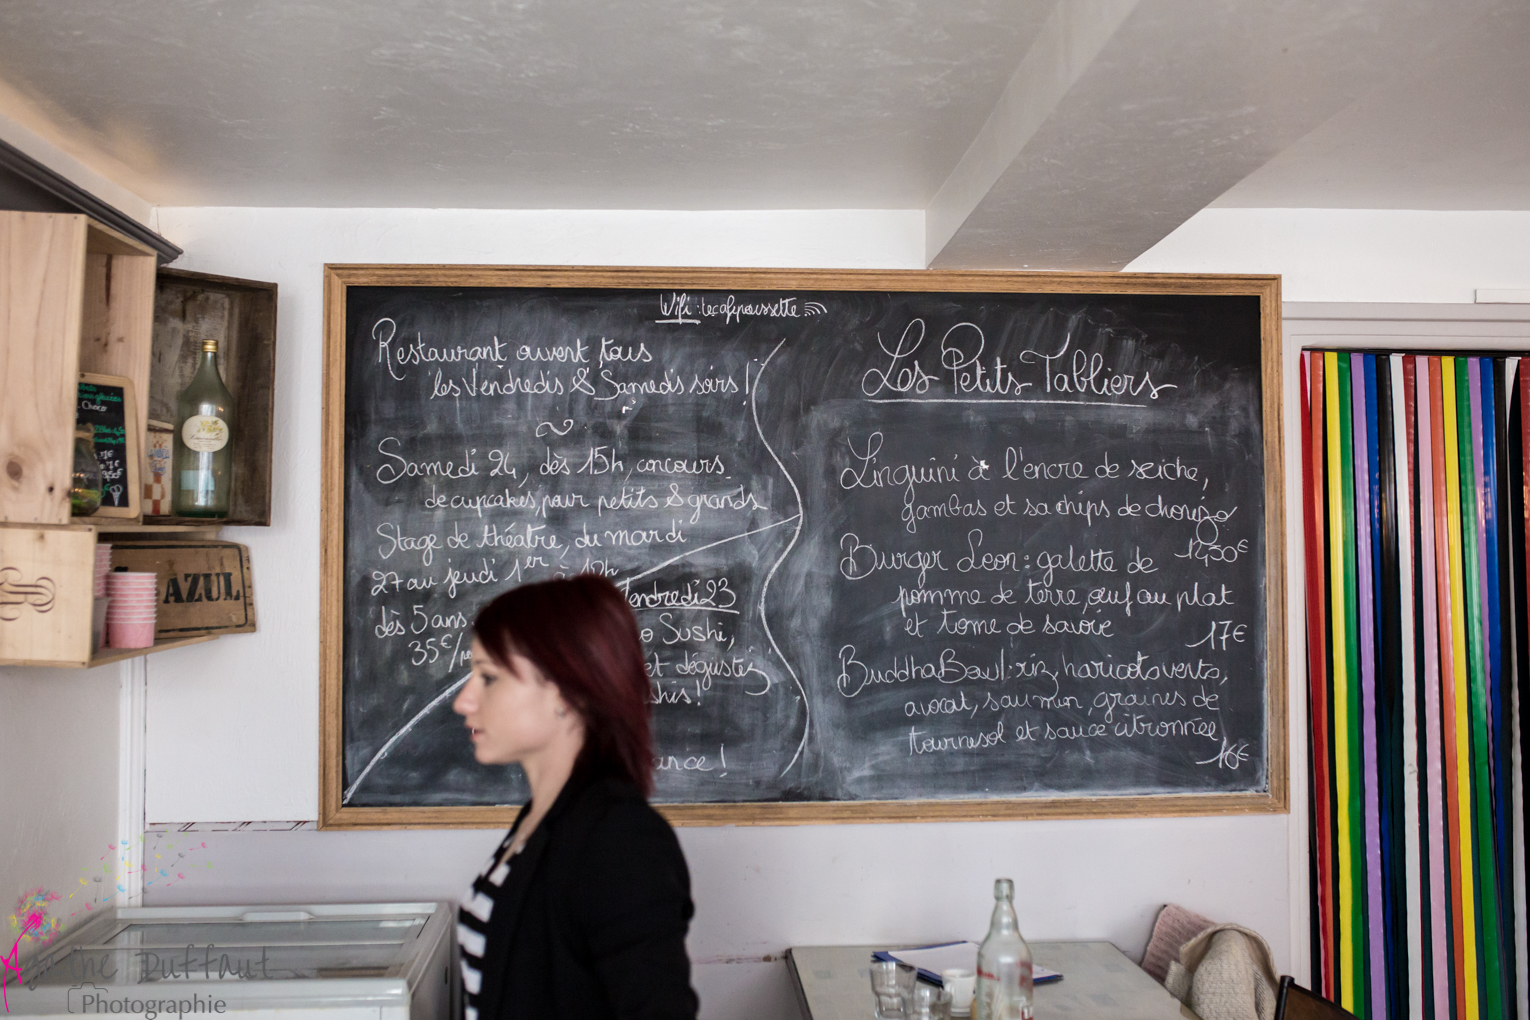 Wifi : lecafepoussette
Restaurant ouvert tous
les Vendredis & Samedis soirs !
Samedi 24, dès 15h, concours
de cupcakes, pour petits & grands
Stage de théâtre, du mardi
27 au jeudi 1er à 12h
dès 5 ans.
35€/
Vendredi 23
Sushi,
et dégustez
!
!
Les Petits Tabliers
Linguini à l'encre de seiche,
gambas et sa chips de chorizo
Burger Leon : galette de
pomme de terre, œuf au plat
et tome de savoie
17€
Buddha Bowl : riz, haricots verts,
avocat, saumon, graines de
tournesol et sauce citronnée
16€
Choco
AZUL
Ruffaut
Photographie